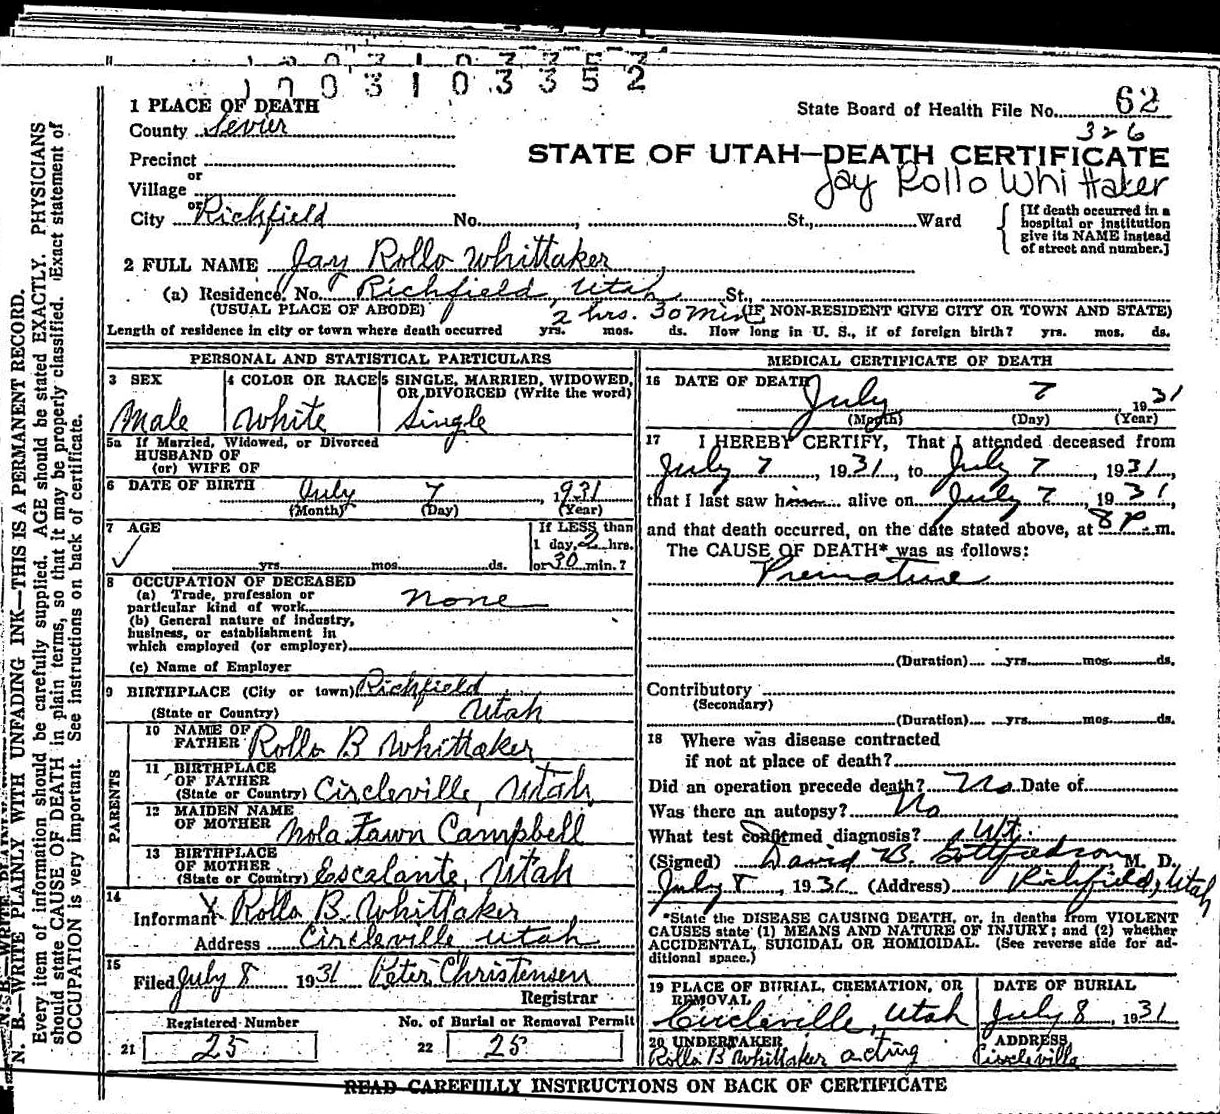 1003103352
1 PLACE OF DEATH
State Board of Health File No. 62
County Sevier
326
Precinct
STATE OF UTAH—DEATH CERTIFICATE
or
Village
Jay Rollo Whittaker
or
City Richfield No. , St., Ward
[If death occurred in a hospital or institution give its NAME instead of street and number.]
2 FULL NAME Jay Rollo Whittaker
(a) Residence, No. Richfield, Utah St.,
(USUAL PLACE OF ABODE) 2 hrs. 30 min (IF NON-RESIDENT GIVE CITY OR TOWN AND STATE)
Length of residence in city or town where death occurred yrs. mos. ds. How long in U. S., if of foreign birth? yrs. mos. ds.
PERSONAL AND STATISTICAL PARTICULARS
3 SEX
Male
4 COLOR OR RACE
White
5 SINGLE, MARRIED, WIDOWED,
OR DIVORCED (Write the word)
Single
5a If Married, Widowed, or Divorced
HUSBAND OF
(or) WIFE OF
6 DATE OF BIRTH July 7, 1931
(Month) (Day) (Year)
7 AGE
yrs. mos. ds.
If LESS than
1 day, 2 hrs.
or 30 min.?
8 OCCUPATION OF DECEASED
(a) Trade, profession or
particular kind of work none
(b) General nature of industry,
business, or establishment in
which employed (or employer)
(c) Name of Employer
9 BIRTHPLACE (City or town) Richfield
(State or Country) Utah
PARENTS
10 NAME OF
FATHER Rollo B Whittaker
11 BIRTHPLACE
OF FATHER
(State or Country) Circleville, Utah
12 MAIDEN NAME
OF MOTHER Nola Fawn Campbell
13 BIRTHPLACE
OF MOTHER
(State or Country) Escalante, Utah
14
Informant X Rollo B. Whittaker
Address Circleville Utah
15
Filed July 8 1931 Peter Christensen
Registrar
Registered Number
21 25
No. of Burial or Removal Permit
22 25
MEDICAL CERTIFICATE OF DEATH
16 DATE OF DEATH
July 7 1931
(Month) (Day) (Year)
17 I HEREBY CERTIFY, That I attended deceased from
July 7, 1931, to July 7, 1931,
that I last saw him alive on July 7, 1931,
and that death occurred, on the date stated above, at 8 P.m.
The CAUSE OF DEATH* was as follows:
Premature
(Duration) yrs. mos. ds.
Contributory
(Secondary)
(Duration) yrs. mos. ds.
18 Where was disease contracted
if not at place of death?
Did an operation precede death? No Date of
Was there an autopsy? No
What test confirmed diagnosis? Wt.
(Signed) David B. Gottfredson M. D.
July 8, 1931 (Address) Richfield, Utah
*State the DISEASE CAUSING DEATH, or, in deaths from VIOLENT
CAUSES state (1) MEANS AND NATURE OF INJURY; and (2) whether
ACCIDENTAL, SUICIDAL OR HOMICIDAL. (See reverse side for ad-
ditional space.)
19 PLACE OF BURIAL, CREMATION, OR
REMOVAL
Circleville, Utah
DATE OF BURIAL
July 8, 1931
20 UNDERTAKER
Rollo B Whittaker acting
ADDRESS
Circleville
READ CAREFULLY INSTRUCTIONS ON BACK OF CERTIFICATE
N. B.—WRITE PLAINLY WITH UNFADING INK—THIS IS A PERMANENT RECORD.
Every item of information should be carefully supplied. AGE should be stated EXACTLY. PHYSICIANS
should state CAUSE OF DEATH in plain terms, so that it may be properly classified. Exact statement of
OCCUPATION is very important. See instructions on back of certificate.